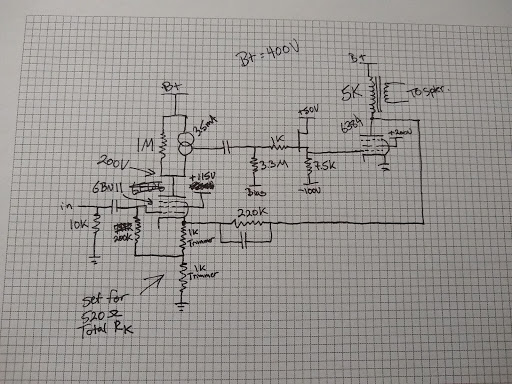 B+=400V
B+
5K
To Spkr.
B+
35mA
1M
+50V
1K
6384
+200V
200V
3.3M
7.5K
Bias
-100V
+115V
6BW11
in
10K
200K
220K
1K
Trimmer
1K
Trimmer
set for
520Ω
Total RK